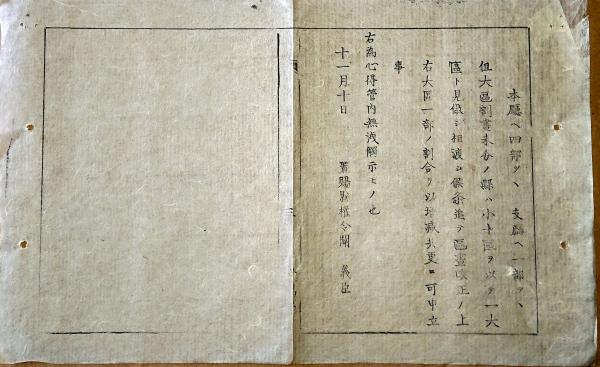 本廳ヘ四部ツヽ 支廳ヘ一部ツヽ
但大區割畫未分ノ縣ハ小十區ヲ以テ一大
區ト見做シ相渡シ候条追テ區畫改正ノ上
右大區一部ノ割合ヲ以増減共更ニ可申立
事
右為心得管内無洩觸示モノ也
十一月十日 權令關 義臣